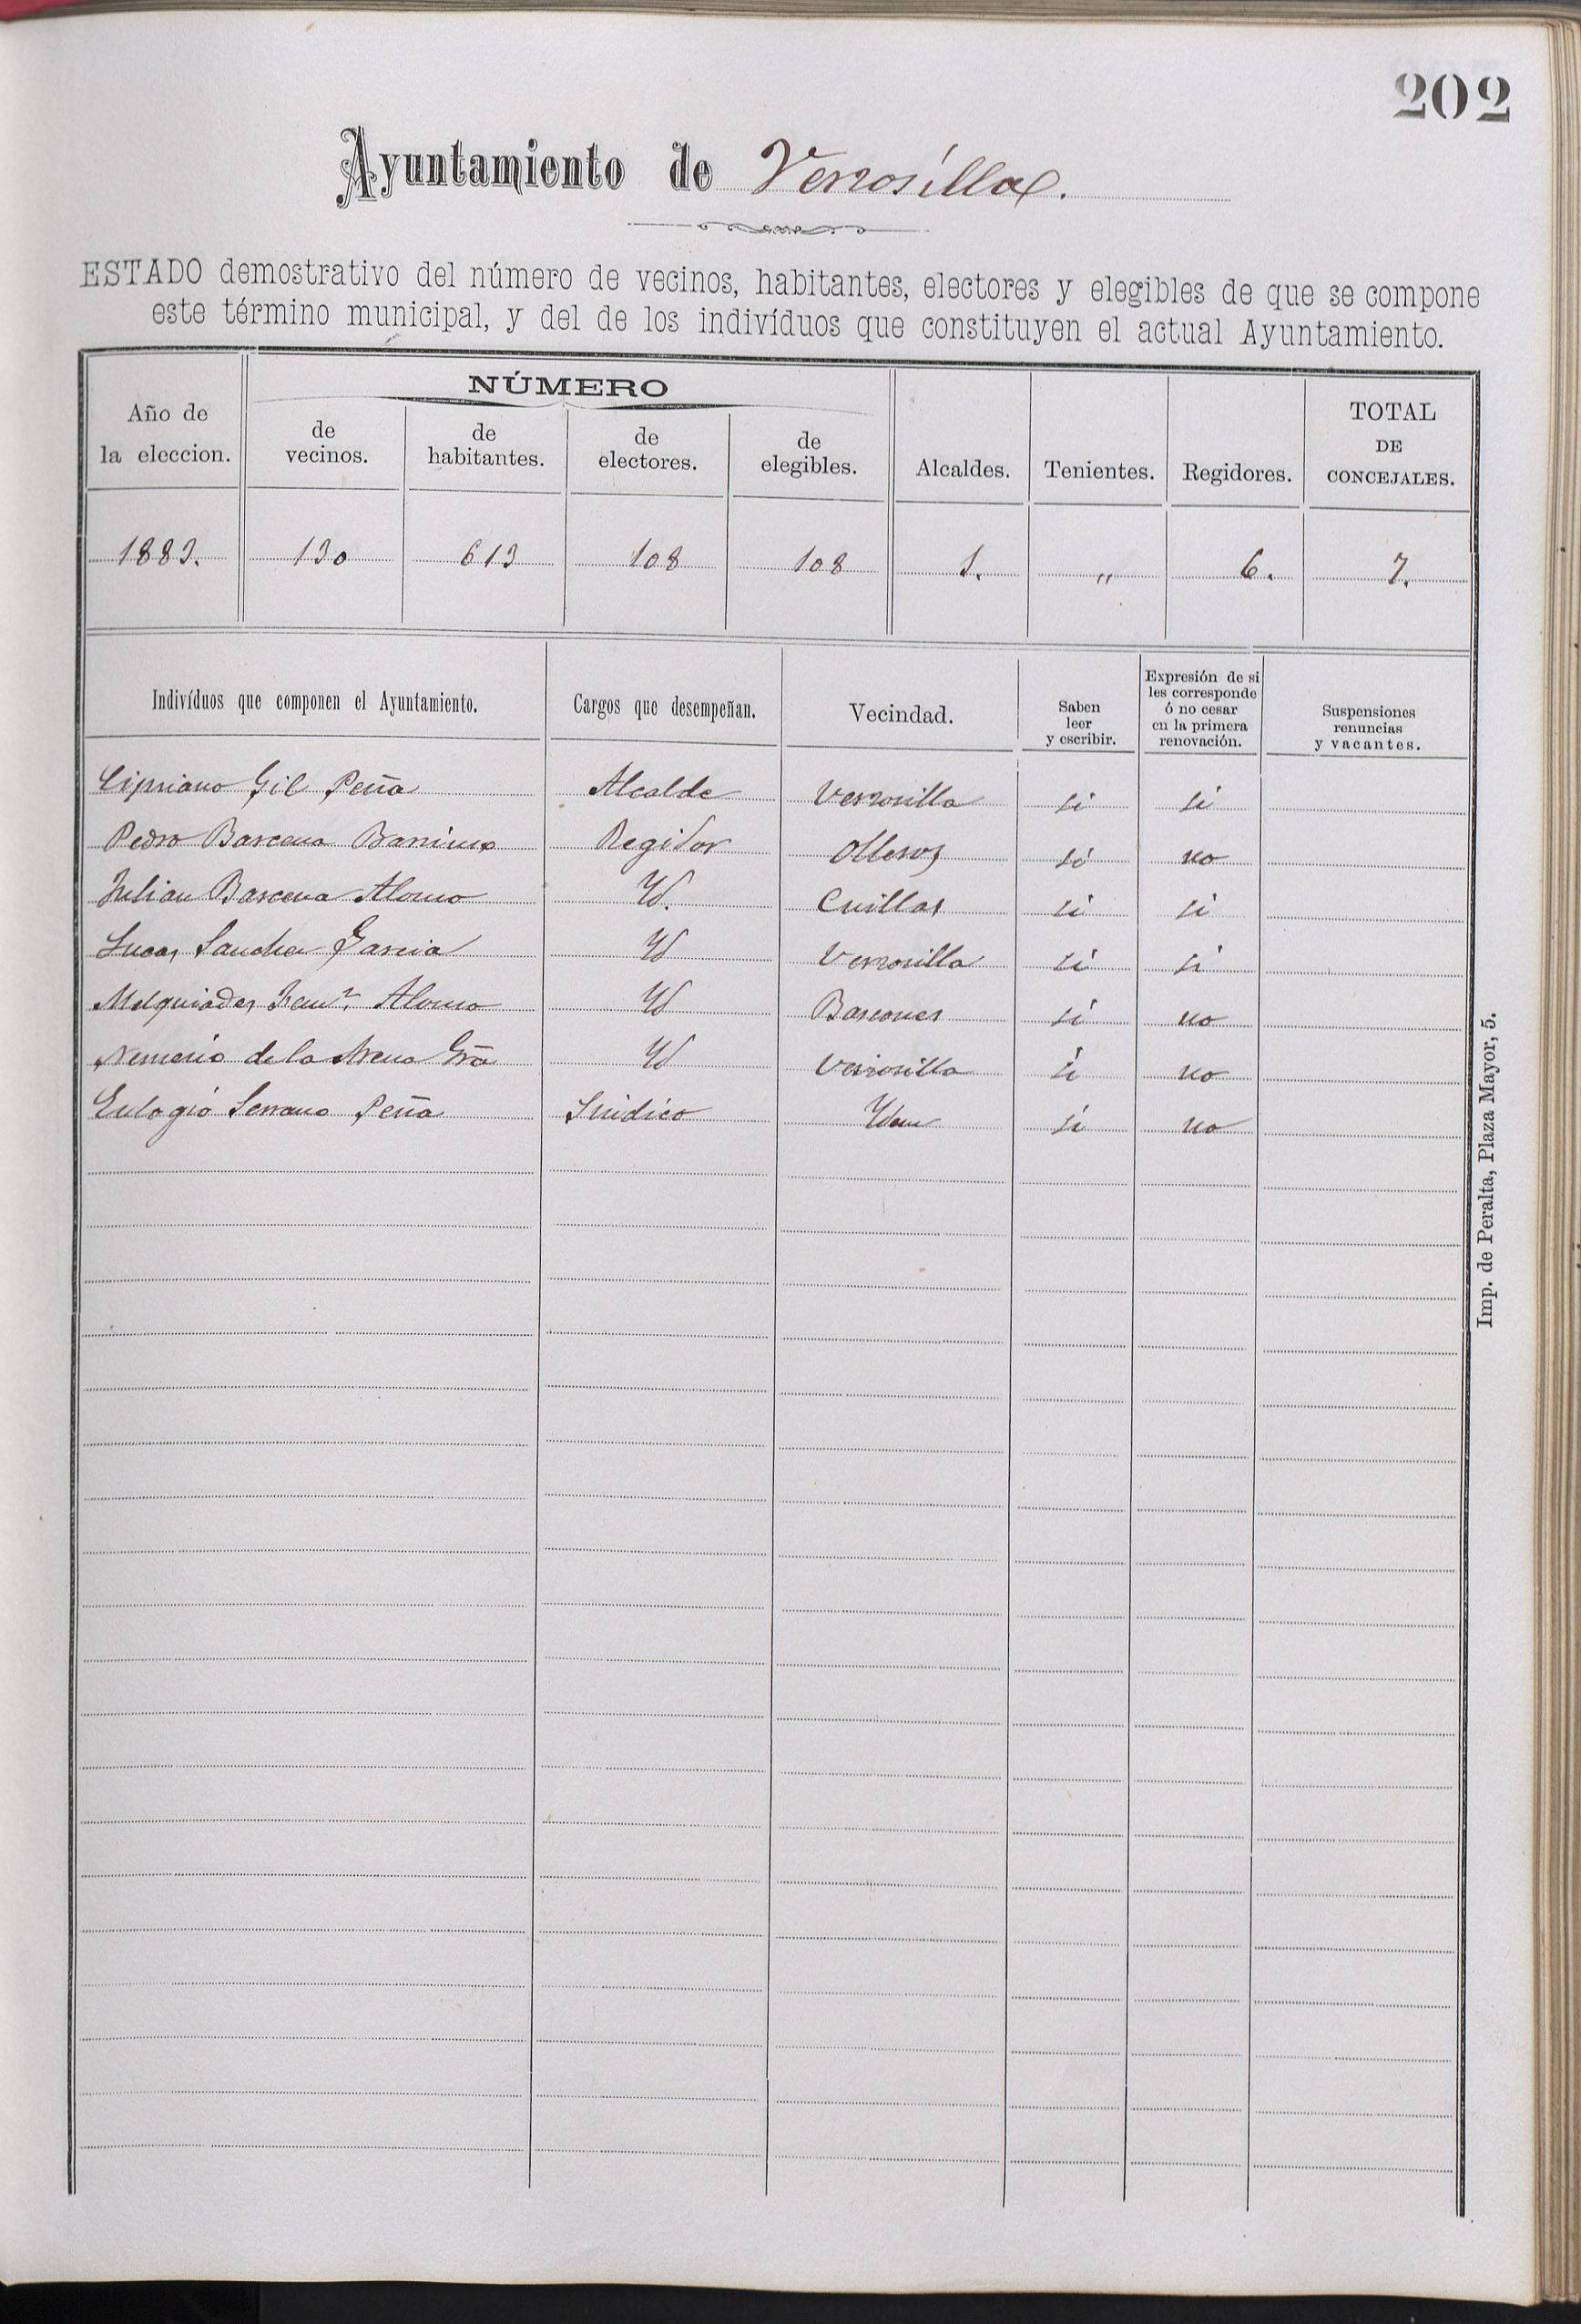 202
Ayuntamiento de Verzosilla.
ESTADO demostrativo del número de vecinos, habitantes, electores y elegibles de que se compone
este término municipal, y del de los indivíduos que constituyen el actual Ayuntamiento.
Año de la eleccion. NÚMERO de vecinos. de habitantes. de electores. de elegibles. Alcaldes. Tenientes. Regidores. TOTAL DE CONCEJALES.
1883. 130 613 108 108 1. " 6. 7.
Indivíduos que componen el Ayuntamiento. Cargos que desempeñan. Vecindad. Saben leer y escribir. Expresión de si les corresponde ó no cesar en la primera renovación. Suspensiones renuncias y vacantes.
Cipriano Gil Peña Alcalde Verzosilla si si
Pedro Barcena Regidor Olleros si no
Julian Barcena Alonso Yd. Cuillas si si
Lucas Sanchez Garcia Yd Verzosilla si si
Melquiades Alonso Yd Bascones si no
Nemesio de la Arena Gra Yd Verzosilla si no
Eulogio Serrano Peña Sindico Ydem si no
Imp. de Peralta, Plaza Mayor, 5.